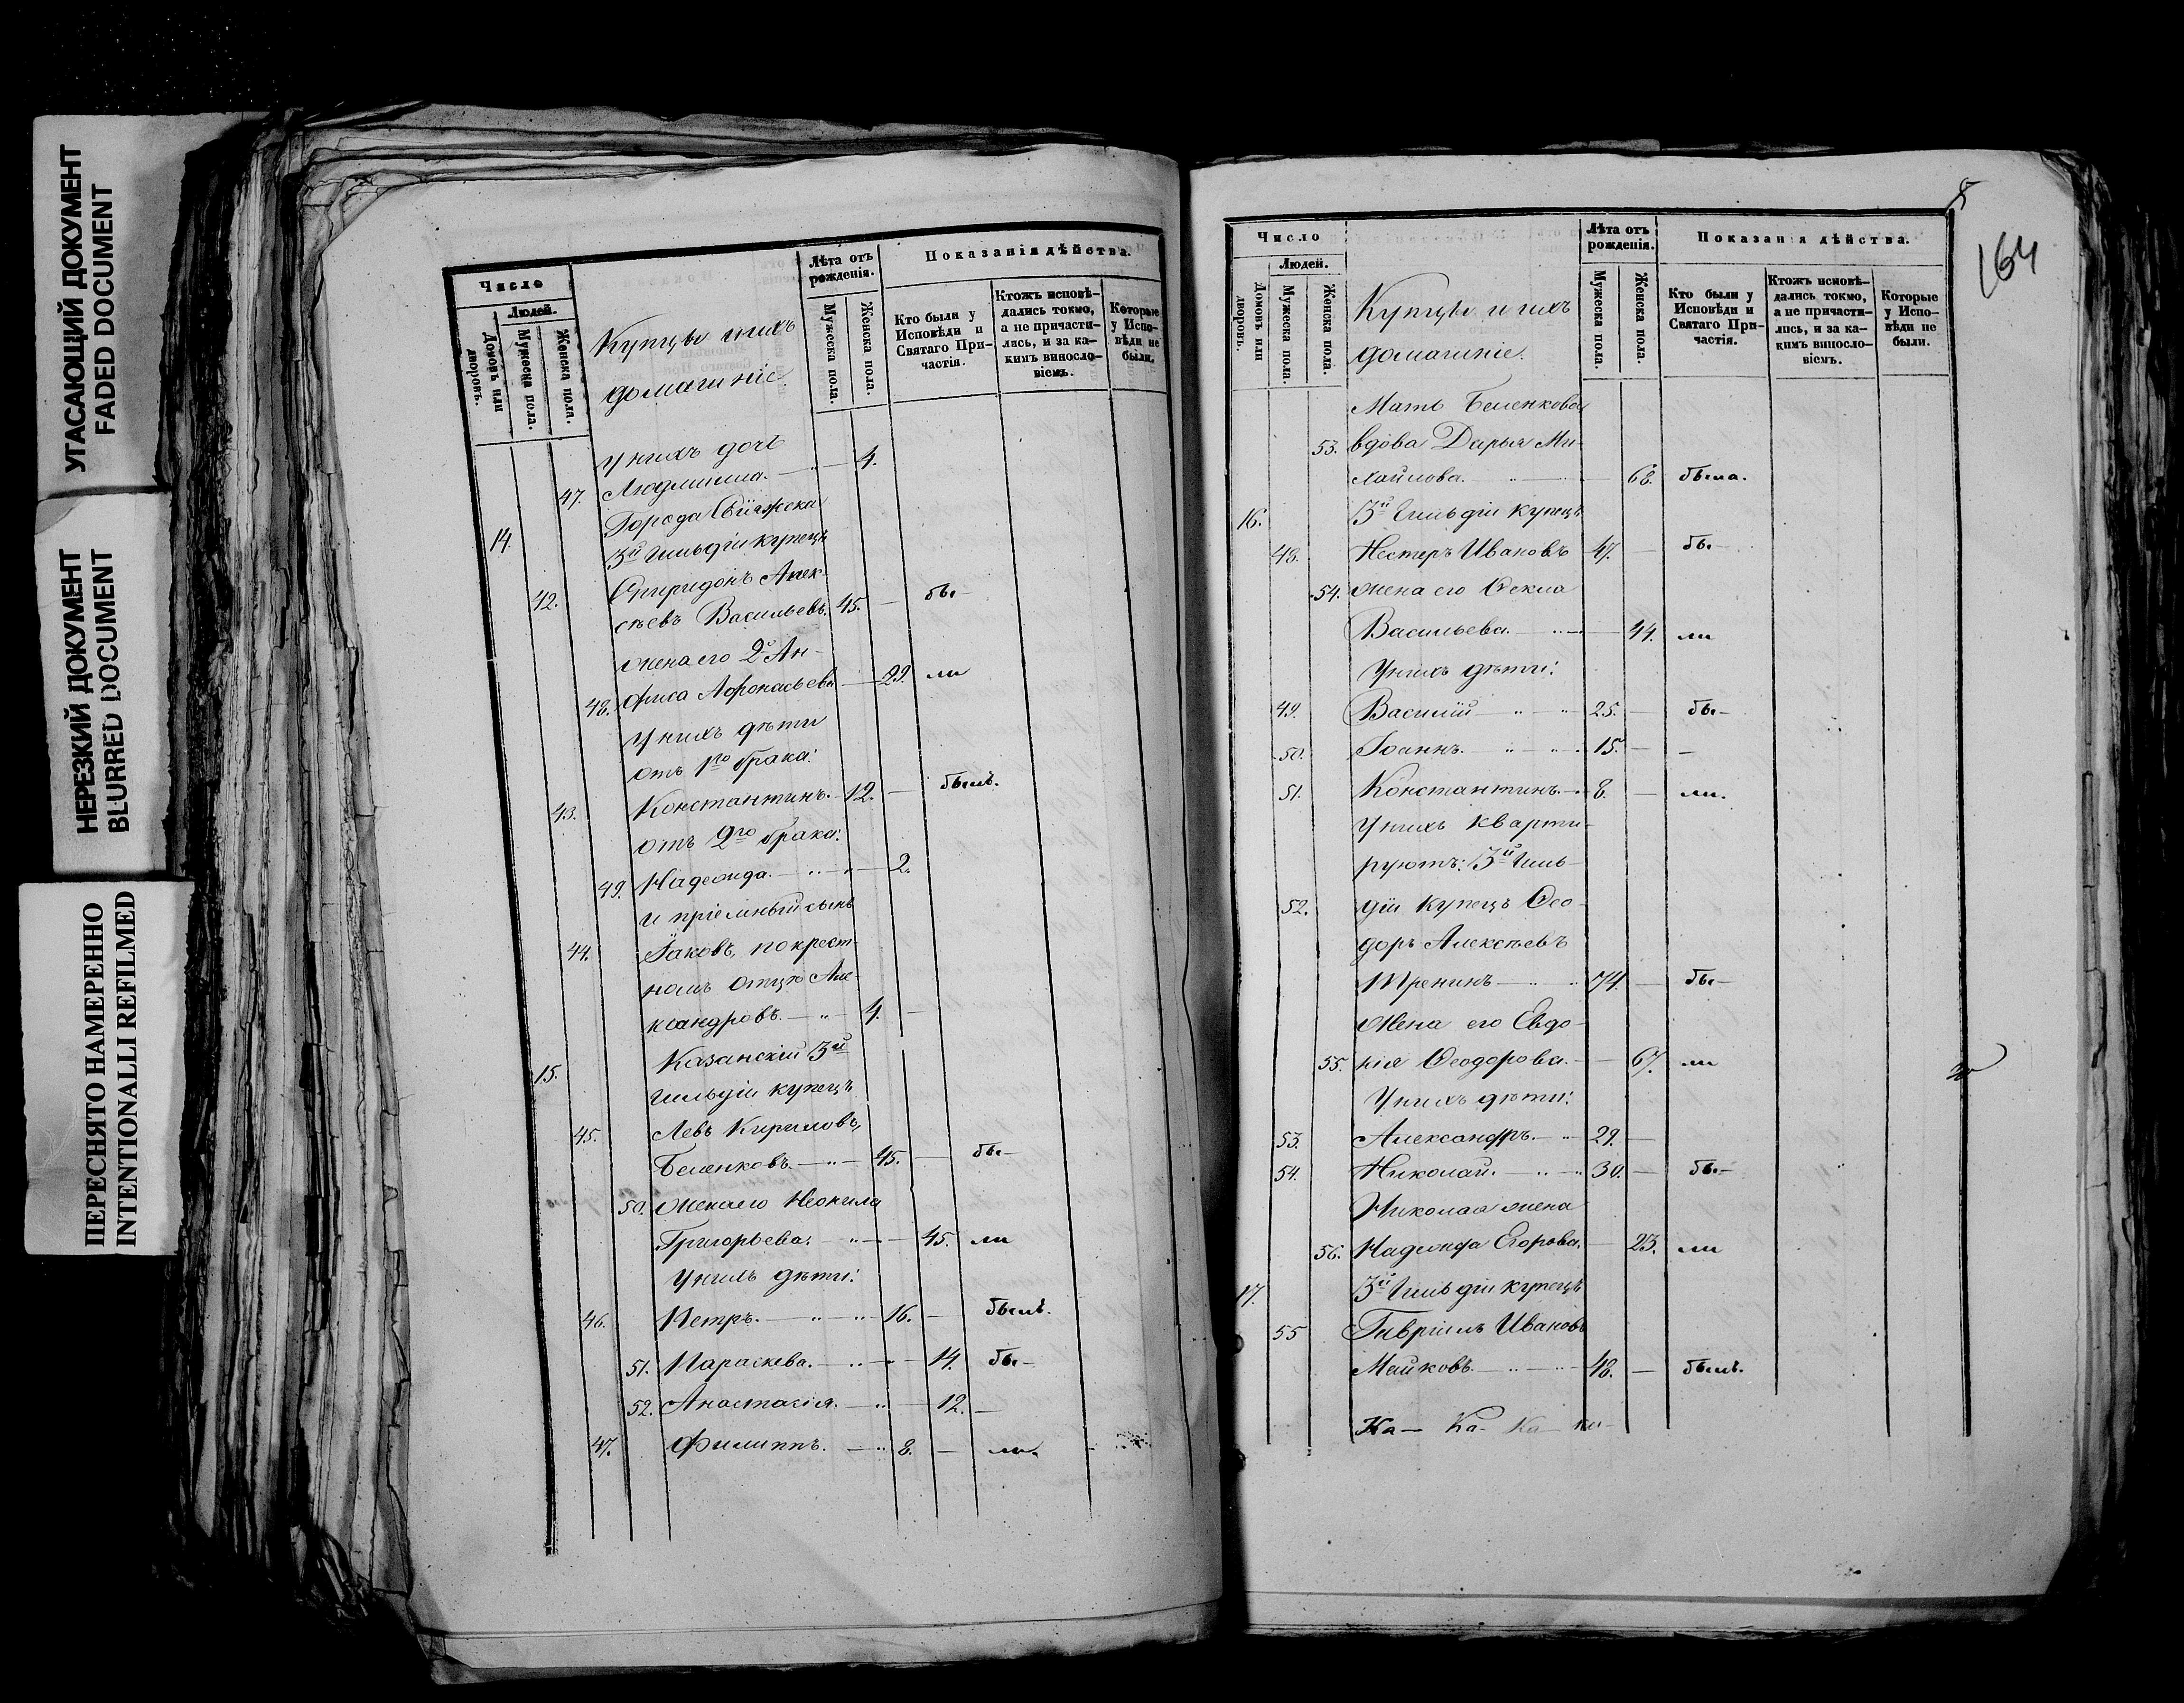 УГАСАЮЩИЙ ДОКУМЕНТ
FADED DOCUMENT
НЕРЕЗКИЙ ДОКУМЕНТ
BLURRED DOCUMENT
ПЕРЕСНЯТО НАМЕРЕННО
INTENTIONALLI REFILMED
Число
Людей.
Домовъ или дворовъ.
Мужеска пола.
Женска пола.
Купцы и ихъ
домашніе.
Лѣта отъ рожденія.
Мужеска пола.
Женска пола.
Показанія дѣйства.
Кто были у Исповѣди и Святаго Причастія.
Ктожъ исповѣдались токмо, а не причастились, и за какимъ винословіемъ.
Которые у Исповѣди не были.
У нихъ дочь
47. Людмилла. 4.
14. Города Свіяжска
3й Гильдіи купецъ
42. Спиридонъ Алек-
сѣевъ Васильевъ. 45. — бы-
жена его 2я Ан-
48. фиса Афонасьева 29. ли
У нихъ дѣти
отъ 1го брака:
43. Константинъ. 12. — былъ.
отъ 2го брака:
49. Надежда. 2.
и пріемный сынъ
44. Іаковъ, по крест-
номъ отцѣ Але-
ксандровъ. 4. —
15. Казанскій 3й
гильдіи купецъ
45. Левъ Кириловъ,
Беленковъ. 45. — бы-
50. жена его Неонила
Григорьева. 45. ли
У нихъ дѣти:
46. Петръ. 16. — былъ.
51. Параскева. 14. бы-
52. Анастасія. 12. —
47. Филиппъ. 8. — ли.
8
164
Число
Людей.
Домовъ или дворовъ.
Мужеска пола.
Женска пола.
Купцы и ихъ
домашніе.
Лѣта отъ рожденія.
Мужеска пола.
Женска пола.
Показанія дѣйства.
Кто были у Исповѣди и Святаго Причастія.
Ктожъ исповѣдались токмо, а не причастились, и за какимъ винословіемъ.
Которые у Исповѣди не были.
Мать Беленкова
53. вдова Дарья Ми-
хайлова. 68. была.
16. 3й Гильдіи купецъ
48. Нестеръ Ивановъ 47. — бы-
54. жена его Ѳекла
Васильева. 44. ли
У нихъ дѣти:
49. Василій 25. — бы-
50. Іоаннъ. 15. — —
51. Константинъ. 8. — ли.
У нихъ кварти-
руютъ: 3й Гиль-
52. діи купецъ Ѳео-
доръ Алексѣевъ
Тренинъ 74. — бы-
Жена его Евдо-
55. кія Ѳеодорова. 67. ли
У нихъ дѣти:
53. Александръ. 29. —
54. Николай. 30. — бы-
Николая жена
56. Надежда Егорова. 23. ли
17. 3й Гильдіи купецъ
55 Гавріилъ Ивановъ
Майковъ 48. — былъ.
Ка— Ка— Ка— Ка—